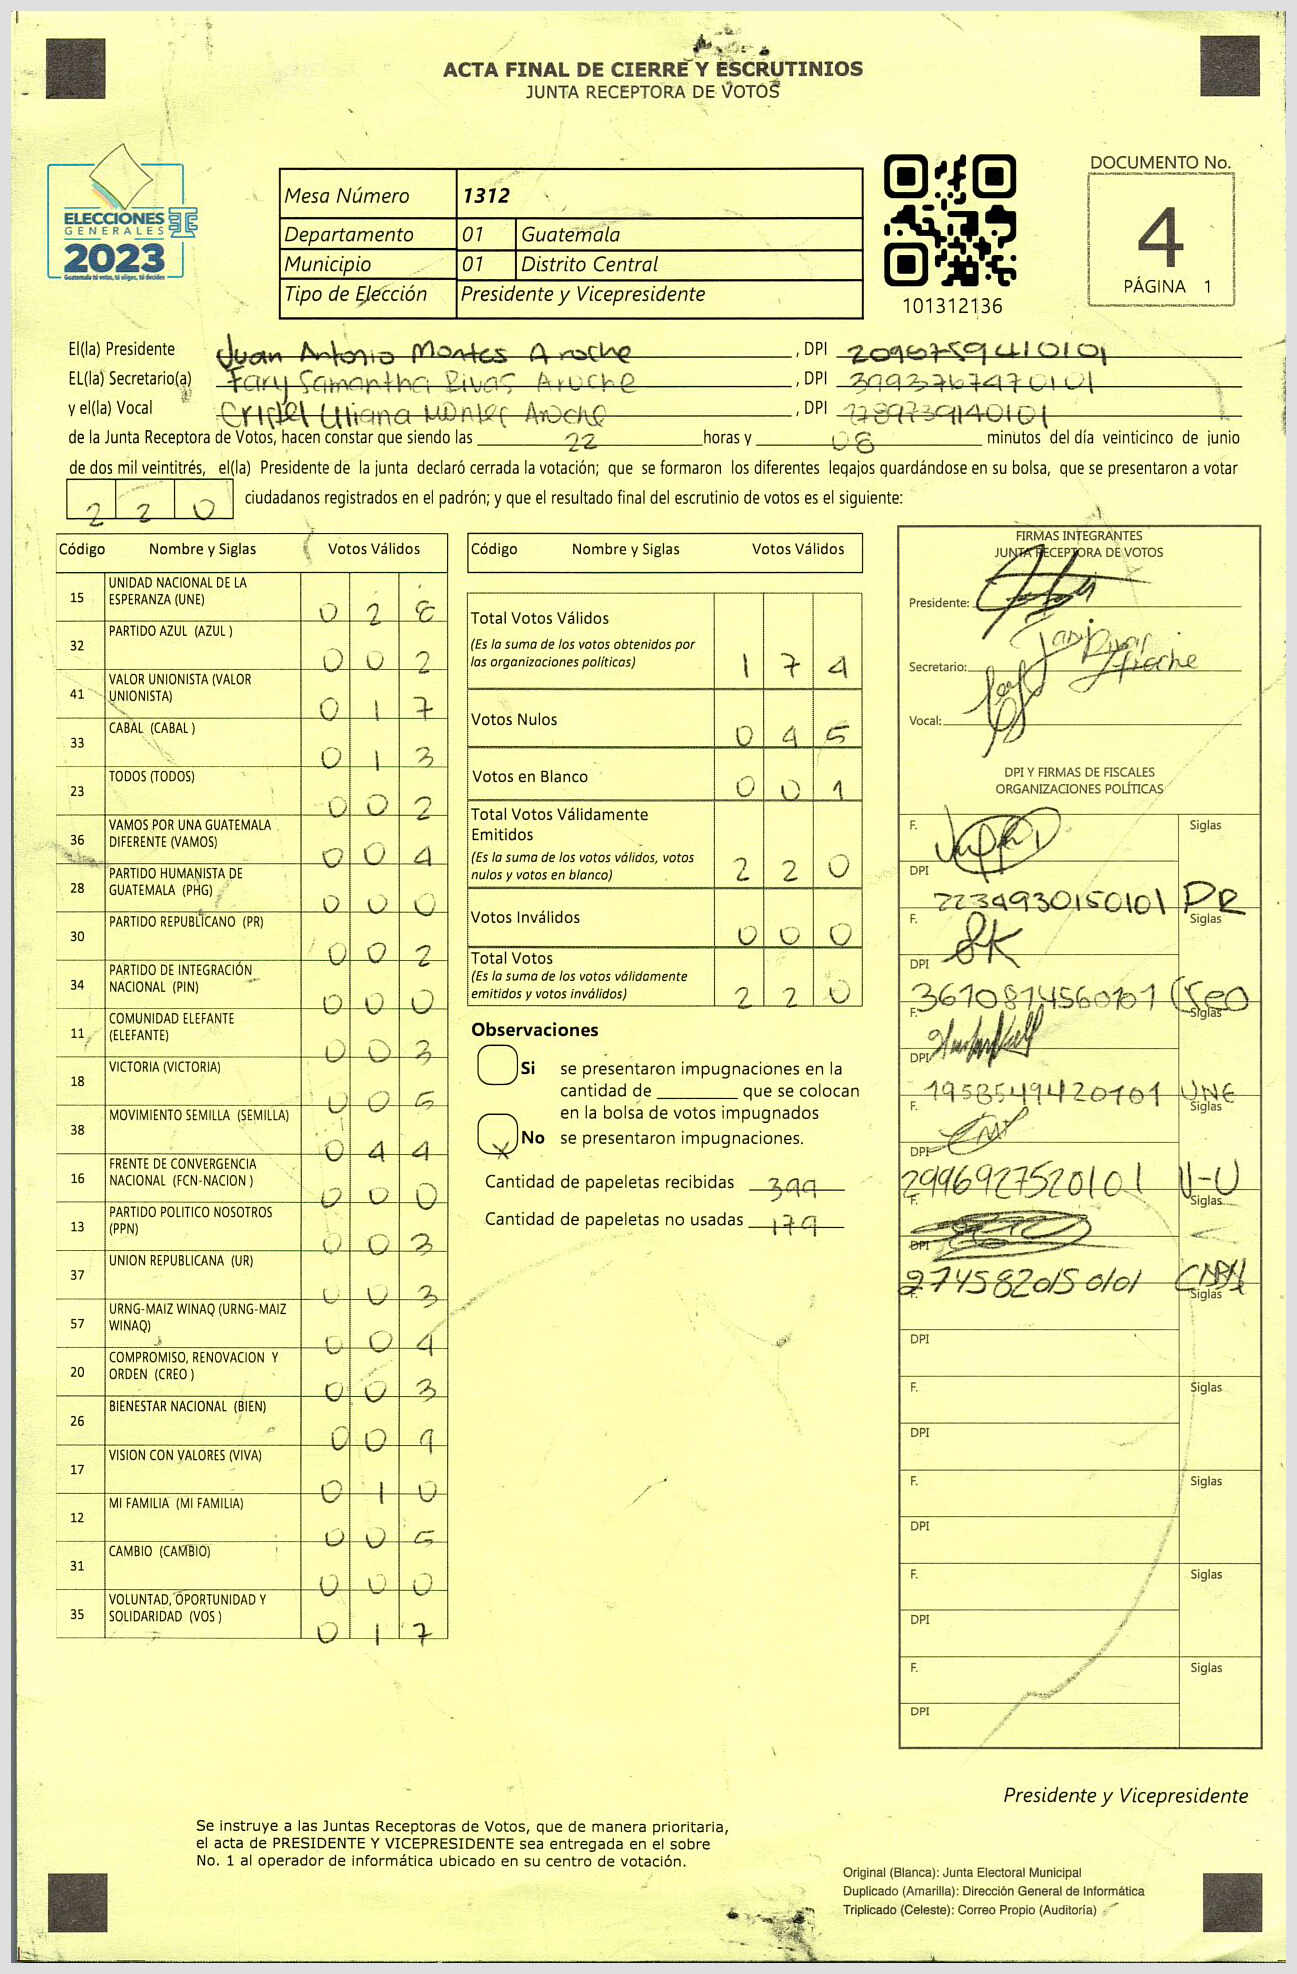 ACTA FINAL DE CIERRE Y ESCRUTINIOS
JUNTA RECEPTORA DE VOTOS
ELECCIONES
GENERALES
2023
Guatemala tú votas, tú eliges, tú decides
Mesa Número 1312
Departamento 01 Guatemala
Municipio 01 Distrito Central
Tipo de Elección Presidente y Vicepresidente
101312136
DOCUMENTO No.
4
PÁGINA 1
El(la) Presidente Juan Antonio Montes Aroche, DPI 2096759410101
EL(la) Secretario(a) Fary Samantha Rivas Aroche, DPI 3993767470101
y el(la) Vocal Cristel Liliana Montes Aroche, DPI 2789739140101
de la Junta Receptora de Votos, hacen constar que siendo las 22 horas y 08 minutos del día veinticinco de junio
de dos mil veintitrés, el(la) Presidente de la junta declaró cerrada la votación; que se formaron los diferentes legajos guardándose en su bolsa, que se presentaron a votar
220 ciudadanos registrados en el padrón; y que el resultado final del escrutinio de votos es el siguiente:
Código Nombre y Siglas Votos Válidos
15 UNIDAD NACIONAL DE LA ESPERANZA (UNE) 0 2 8
32 PARTIDO AZUL (AZUL ) 0 0 2
41 VALOR UNIONISTA (VALOR UNIONISTA) 0 1 7
33 CABAL (CABAL ) 0 1 3
23 TODOS (TODOS) 0 0 2
36 VAMOS POR UNA GUATEMALA DIFERENTE (VAMOS) 0 0 4
28 PARTIDO HUMANISTA DE GUATEMALA (PHG) 0 0 0
30 PARTIDO REPUBLICANO (PR) 0 0 2
34 PARTIDO DE INTEGRACIÓN NACIONAL (PIN) 0 0 0
11 COMUNIDAD ELEFANTE (ELEFANTE) 0 0 3
18 VICTORIA (VICTORIA) 0 0 5
38 MOVIMIENTO SEMILLA (SEMILLA) 0 4 4
16 FRENTE DE CONVERGENCIA NACIONAL (FCN-NACION ) 0 0 0
13 PARTIDO POLITICO NOSOTROS (PPN) 0 0 3
37 UNION REPUBLICANA (UR) 0 0 3
57 URNG-MAIZ WINAQ (URNG-MAIZ WINAQ) 0 0 4
20 COMPROMISO, RENOVACION Y ORDEN (CREO ) 0 0 3
26 BIENESTAR NACIONAL (BIEN) 0 0 9
17 VISION CON VALORES (VIVA) 0 1 0
12 MI FAMILIA (MI FAMILIA) 0 0 5
31 CAMBIO (CAMBIO) 0 0 0
35 VOLUNTAD, OPORTUNIDAD Y SOLIDARIDAD (VOS ) 0 1 7
Código Nombre y Siglas Votos Válidos
Total Votos Válidos 1 7 4
(Es la suma de los votos obtenidos por
las organizaciones políticas)
Votos Nulos 0 4 5
Votos en Blanco 0 0 1
Total Votos Válidamente
Emitidos 2 2 0
(Es la suma de los votos válidos, votos
nulos y votos en blanco)
Votos Inválidos 0 0 0
Total Votos 2 2 0
(Es la suma de los votos válidamente
emitidos y votos inválidos)
Observaciones
Si se presentaron impugnaciones en la
cantidad de ________ que se colocan
en la bolsa de votos impugnados
X No se presentaron impugnaciones.
Cantidad de papeletas recibidas 399
Cantidad de papeletas no usadas 179
FIRMAS INTEGRANTES
JUNTA RECEPTORA DE VOTOS
Presidente:
Secretario:
Vocal:
DPI Y FIRMAS DE FISCALES
ORGANIZACIONES POLÍTICAS
F. Siglas
DPI 2234930150101 PR
F. Siglas
DPI 3670814560101 Creo
F. Siglas
DPI 1958549420101 UNE
F. Siglas
DPI 2996927520101 U-U
F. Siglas
DPI 2745820150101
F. Siglas
DPI
F. Siglas
DPI
F. Siglas
DPI
F. Siglas
DPI
F. Siglas
DPI
Presidente y Vicepresidente
Se instruye a las Juntas Receptoras de Votos, que de manera prioritaria,
el acta de PRESIDENTE Y VICEPRESIDENTE sea entregada en el sobre
No. 1 al operador de informática ubicado en su centro de votación.
Original (Blanca): Junta Electoral Municipal
Duplicado (Amarilla): Dirección General de Informática
Triplicado (Celeste): Correo Propio (Auditoría)